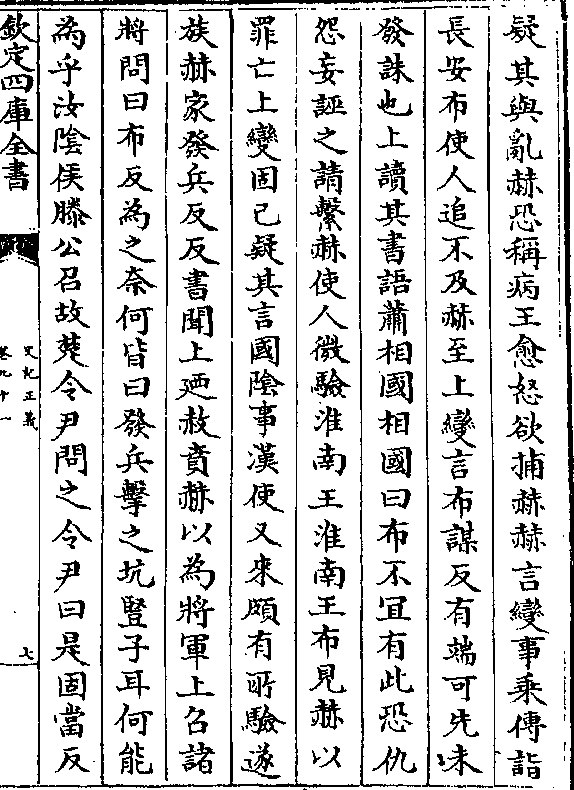 疑其與亂赫恐稱病王愈怒欲捕赫赫言變事乘傳詣
長安布使人追不及赫至上變言布謀反有端可先未
發誅也上讀其書語蕭相國相國曰布不宜有此恐仇
怨妄誣之請繫赫使人微驗淮南王淮南王布見赫以
罪亡上變固已疑其言國陰事漢使又來頗有所驗遂
族赫家發兵反反書聞上廼赦賁赫以為將軍上召諸
將問曰布反為之奈何皆曰發兵擊之坑豎子耳何能
為乎汝陰侯滕公召故楚令尹問之令尹曰是固當反
欽定四庫全書
史記正義
卷九十一
七